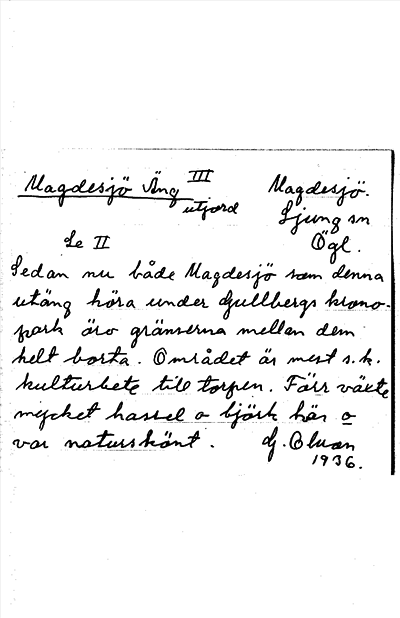 Magdesjö Äng III Magdesjö.
utjord Ljung sn
Se II Ögl.
Sedan nu både Magdesjö som denna
utäng höra under Gullbergs krono-
park äro gränserna mellan dem
helt borta. Området är mest s.k.
kulturbete till torpen. Förr växte
mycket hassel o björk här o
var naturskönt. G.
1936.